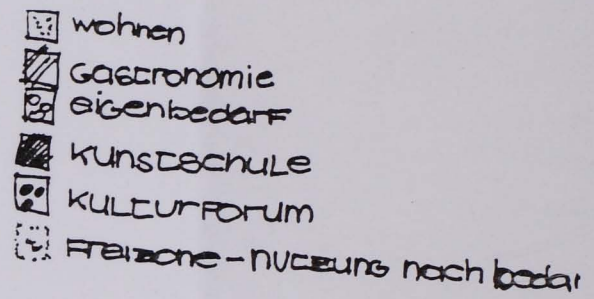 wohnen
Gastronomie
eigenbedarf
Kunstschule
Kulturforum
Freizone - nutzung nach bedar